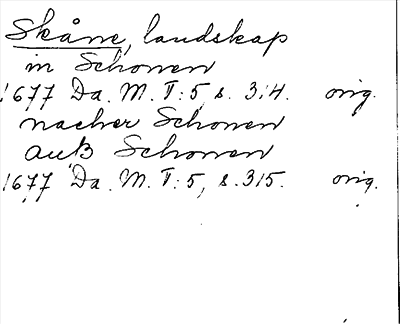 Skåne, landskap
in Schonen
1677 Da. M. I:5, s. 314. orig.
nacher Schonen
auß Schonen
1677 Da. M. I:5, s. 315. orig.